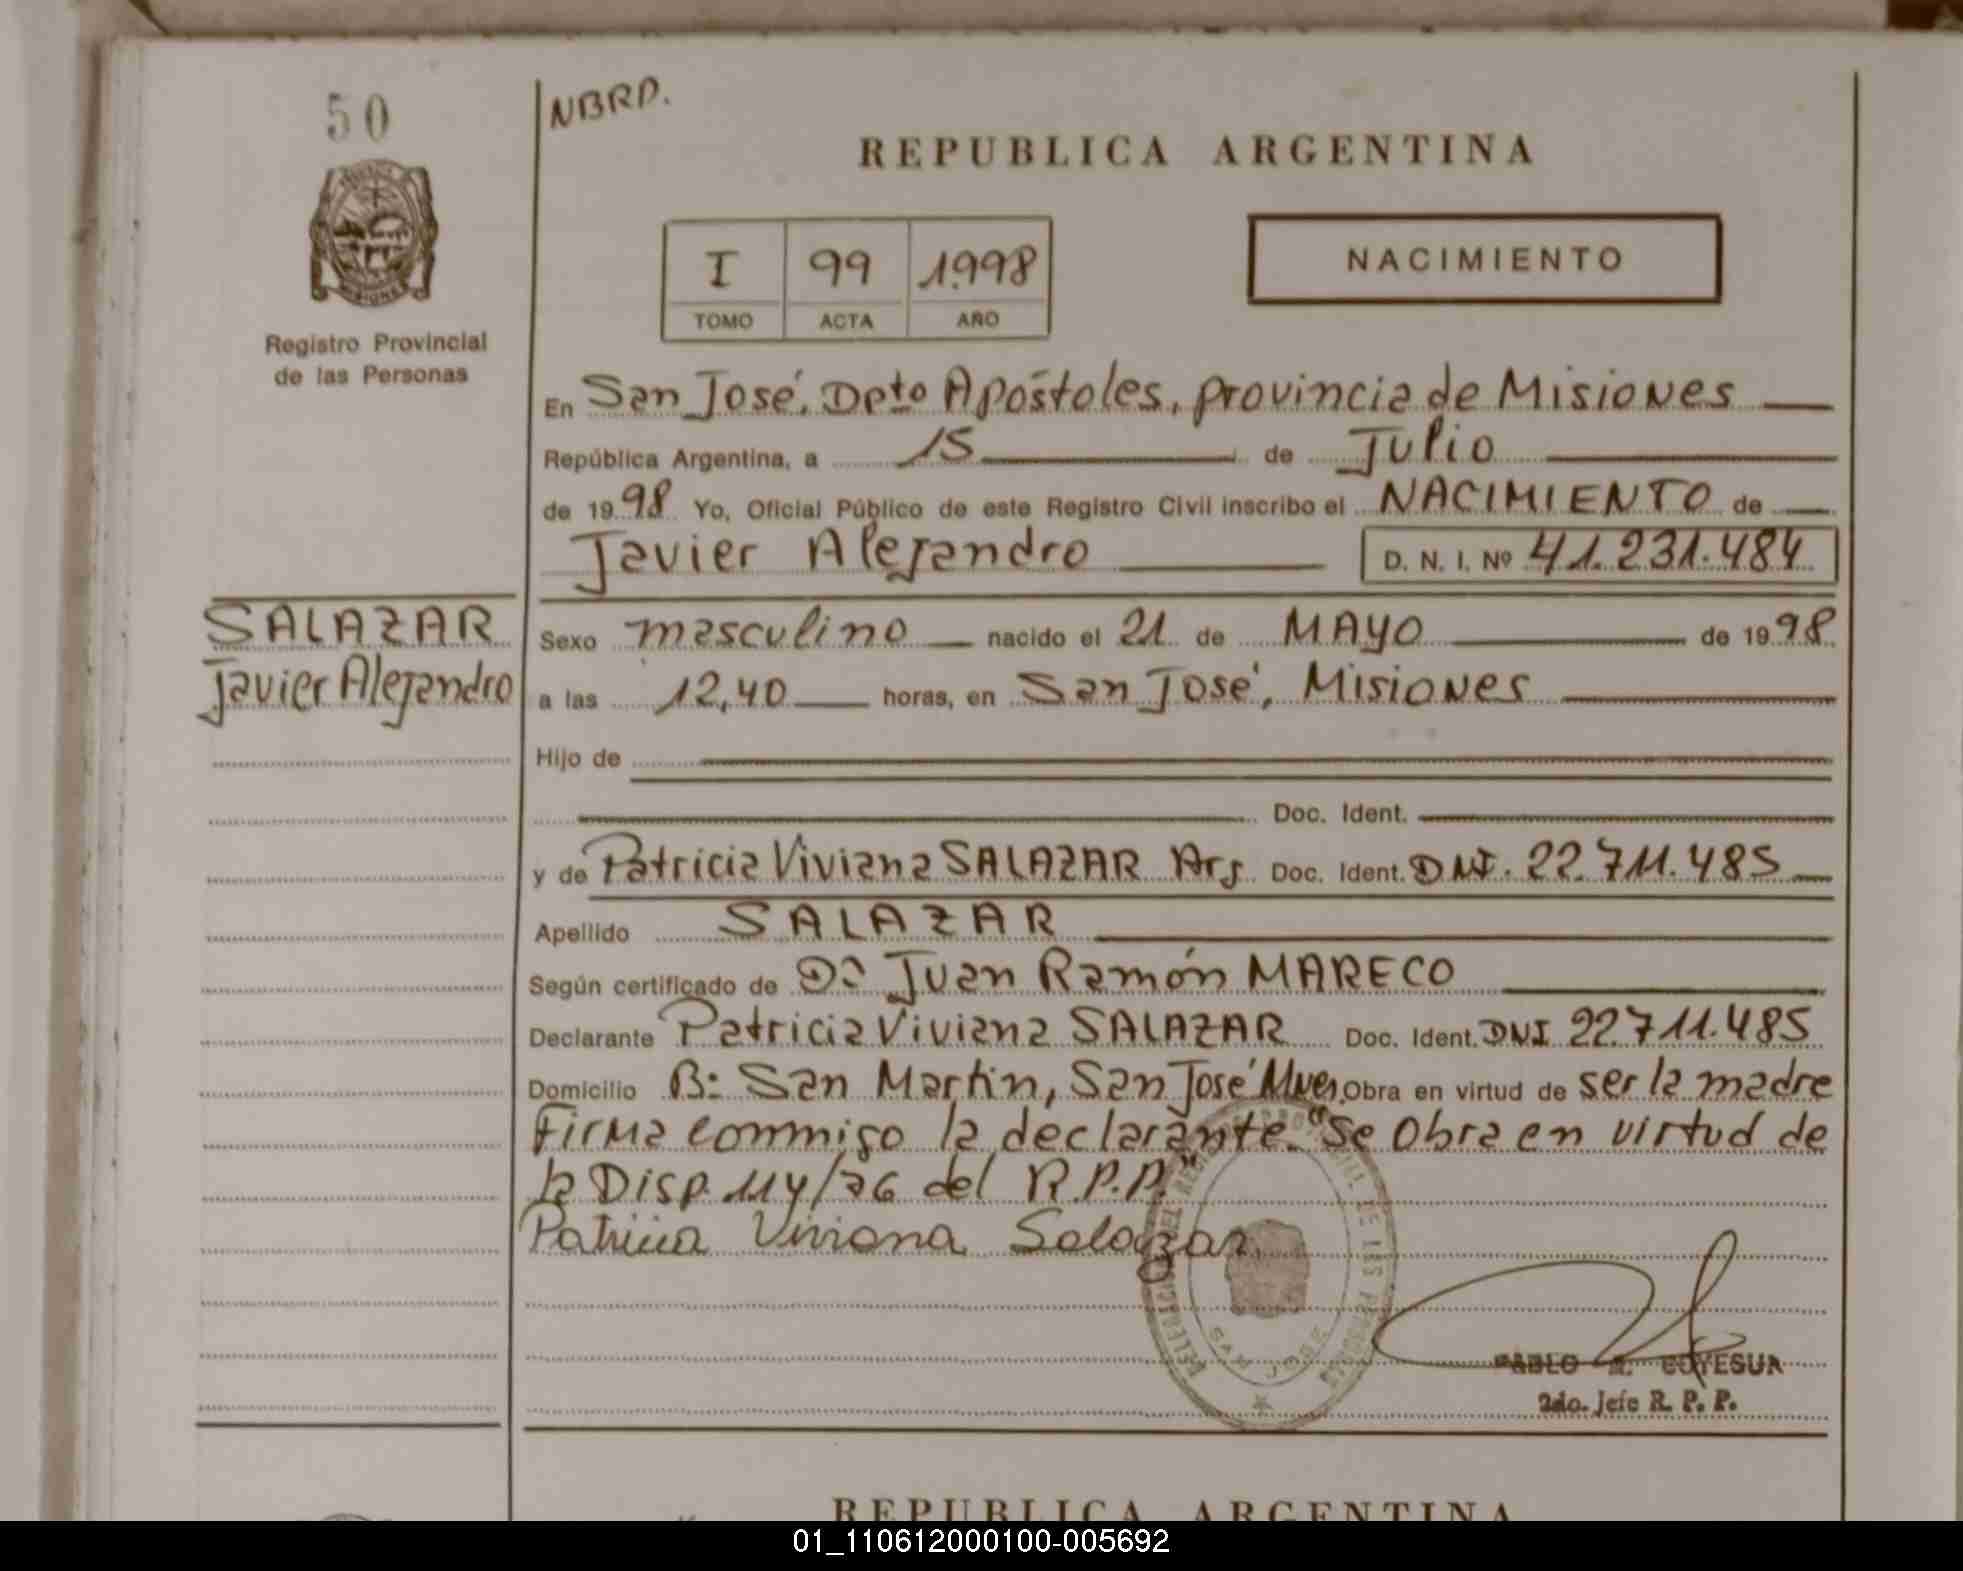 50
NBRP.
REPUBLICA ARGENTINA
I 99 1.998
TOMO ACTA AÑO
NACIMIENTO
MISIONES
Registro Provincial
de las Personas
En San José, Dpto Apóstoles, provincia de Misiones
República Argentina, a 15 de Julio
de 19 98 Yo, Oficial Público de este Registro Civil inscribo el NACIMIENTO de
Javier Alejandro D. N. I. Nº 41.231.484
SALAZAR
Javier Alejandro
Sexo masculino nacido el 21 de MAYO de 19 98
a las 12,40 horas, en San José, Misiones
Hijo de
Doc. Ident.
y de Patricia Viviana SALAZAR Arg Doc. Ident. DNI. 22.711.485
Apellido SALAZAR
Según certificado de Dr Juan Ramón MARECO
Declarante Patricia Viviana SALAZAR Doc. Ident. DNI 22.711.485
Domicilio B: San Martin, San José Mnes, Obra en virtud de ser la madre
Firma conmigo la declarante. "Se Obra en virtud de
la Disp. 114/76 del R.P.P."
Patricia Viviana Salazar
SAN JOSE
PABLO COYESUR
2do. Jefe R. P. P.
REPUBLICA ARGENTINA
01_110612000100-005692